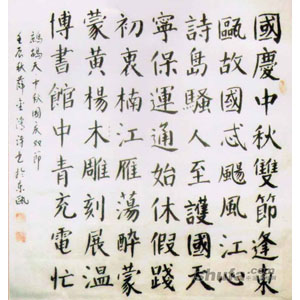 國慶中秋雙節逢東
甌故國忒颺風江心
詩島騷人至護國天
寧保運通始休假踐
初衷楠江雁蕩醉蒙
蒙黃楊木雕刻展溫
博書館中青充電忙
鷓鴣天中秋國慶雙節
壬辰秋薛於东甌